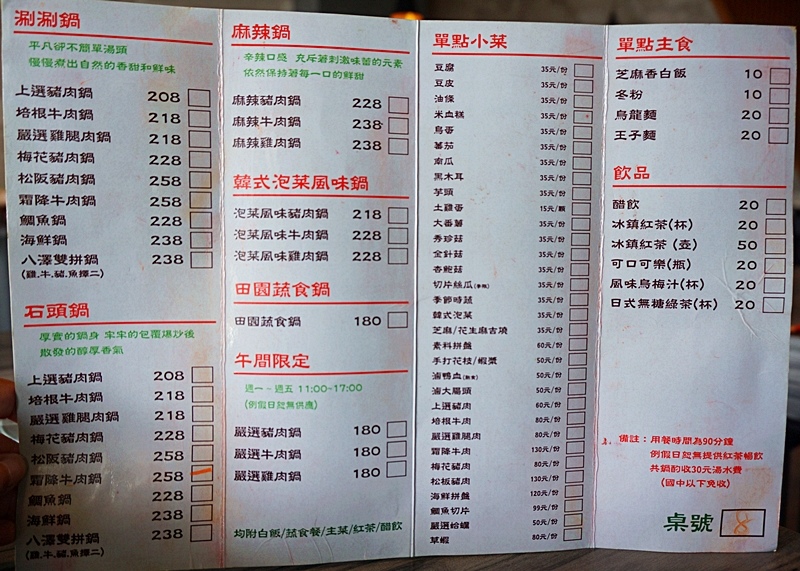 涮涮鍋
平凡卻不簡單湯頭
慢慢煮出自然的香甜和鮮味
上選豬肉鍋 208
培根牛肉鍋 218
嚴選雞腿肉鍋 218
梅花豬肉鍋 228
松阪豬肉鍋 258
霜降牛肉鍋 258
鯛魚鍋 228
海鮮鍋 238
八澤雙拼鍋 238
(雞.牛.豬.魚擇二)
石頭鍋
厚實的鍋身 牢牢的包覆爆炒後
散發的醇厚香氣
上選豬肉鍋 208
培根牛肉鍋 218
嚴選雞腿肉鍋 218
梅花豬肉鍋 228
松阪豬肉鍋 258
霜降牛肉鍋 258
鯛魚鍋 228
海鮮鍋 238
八澤雙拼鍋 238
(雞.牛.豬.魚擇二)
麻辣鍋
辛辣口感 充斥著刺激味蕾的元素
依然保持著每一口的鮮甜
麻辣豬肉鍋 228
麻辣牛肉鍋 238
麻辣雞肉鍋 238
韓式泡菜風味鍋
泡菜風味豬肉鍋 218
泡菜風味牛肉鍋 228
泡菜風味雞肉鍋 228
田園蔬食鍋
田園蔬食鍋 180
午間限定
週一~週五 11:00~17:00
(例假日恕無供應)
嚴選豬肉鍋 180
嚴選牛肉鍋 180
嚴選雞肉鍋 180
均附白飯/蔬食餐/主菜/紅茶/醋飲
單點小菜
豆腐 35元/份
豆皮 35元/份
油條 35元/份
米血糕 35元/份
鳥蛋 35元/份
蕃茄 35元/份
南瓜 35元/份
黑木耳 35元/份
芋頭 35元/份
土雞蛋 15元/顆
大番薯 35元/份
秀珍菇 35元/份
金針菇 35元/份
杏鮑菇 35元/份
切片絲瓜(季節) 35元/份
季節時蔬 35元/份
韓式泡菜 35元/份
芝麻/花生麻吉燒 35元/份
素料拼盤 60元/份
手打花枝/蝦漿 50元/份
滷鴨血(熟食) 50元/份
滷大腸頭 50元/份
上選豬肉 60元/份
培根牛肉 80元/份
嚴選雞腿肉 80元/份
霜降牛肉 130元/份
梅花豬肉 80元/份
松板豬肉 130元/份
海鮮拼盤 120元/份
鯛魚切片 99元/份
嚴選蛤蠣 50元/份
草蝦 80元/份
單點主食
芝麻香白飯 10
冬粉 10
烏龍麵 20
王子麵 20
飲品
醋飲 20
冰鎮紅茶(杯) 20
冰鎮紅茶(壺) 50
可口可樂(瓶) 20
風味烏梅汁(杯) 20
日式無糖綠茶(杯) 20
備註：用餐時間為90分鐘
例假日恕無提供紅茶暢飲
共鍋酌收30元湯水費
(國中以下免收)
桌號 8